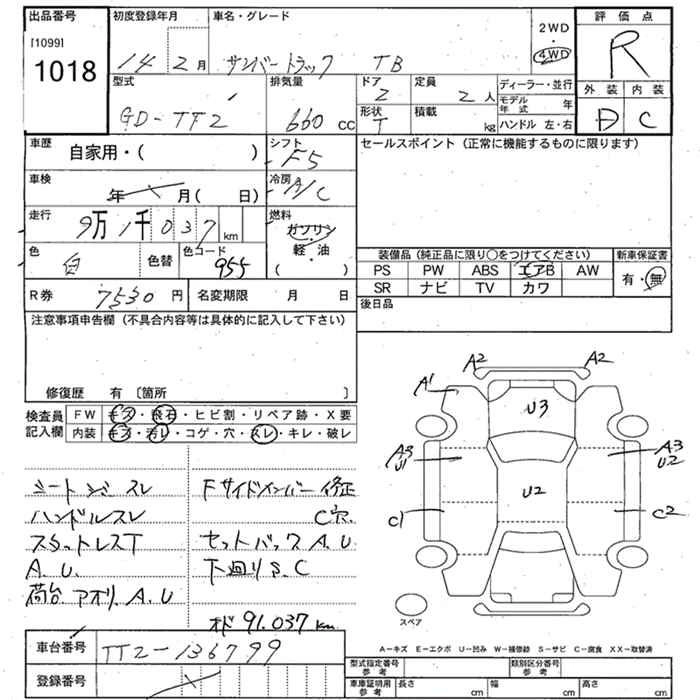 出品番号
[1099]
1018
初度登録年月
14 2月
車名・グレード
サンバートラック TB
2WD
・
4WD
評価点
R
型式
GD-TT2
排気量
660 cc
ドア
2
定員
2人
形状
T
積載
kg
ディーラー・並行
モデル年式 年
ハンドル 左・右
外装 内装
D C
車歴
自家用・( )
シフト
F5
セールスポイント(正常に機能するものに限ります)
車検
年 月( 日)
冷房
A/C
走行
9万1千037 km
燃料
ガソリン
・
軽・油
( )
色
白
色替
色コード
955
装備品(純正品に限り○をつけてください)
新車保証書
PS PW ABS エアB AW
SR ナビ TV カワ
有・無
R券
7530円
名変期限 月 日
後日品
注意事項申告欄(不具合内容等は具体的に記入して下さい)
修復歴 有〔箇所 〕
検査員記入欄
FW キズ・飛石・ヒビ割・リペア跡・X要
内装 キズ・汚レ・コゲ・穴・スレ・キレ・破レ
シートシミ スレ
ハンドルスレ
スタットレスT
A.U.
荷台 アオリ.A.U
Fサイドメンバー 修正
C穴.
セットバック A.U
下廻り S.C
オド 91.037km
A2 A2
A1
U3
A3
U1
A3
U2
U2
C1
C2
スペア
A−キズ E−エクボ U−凹み W−補修跡 S−サビ C−腐食 XX−取替済
車台番号
TT2-136799
登録番号
型式指定番号
参考
類別区分番号
参考
車庫証明用
参考
長さ cm
幅 cm
高さ cm